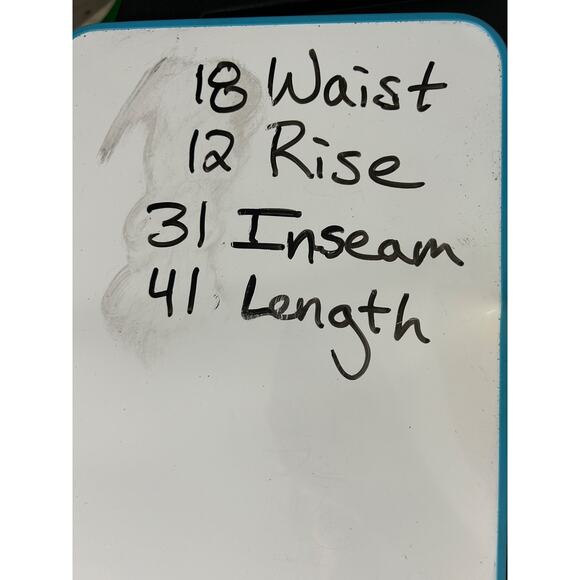 18 Waist
12 Rise
31 Inseam
41 Length